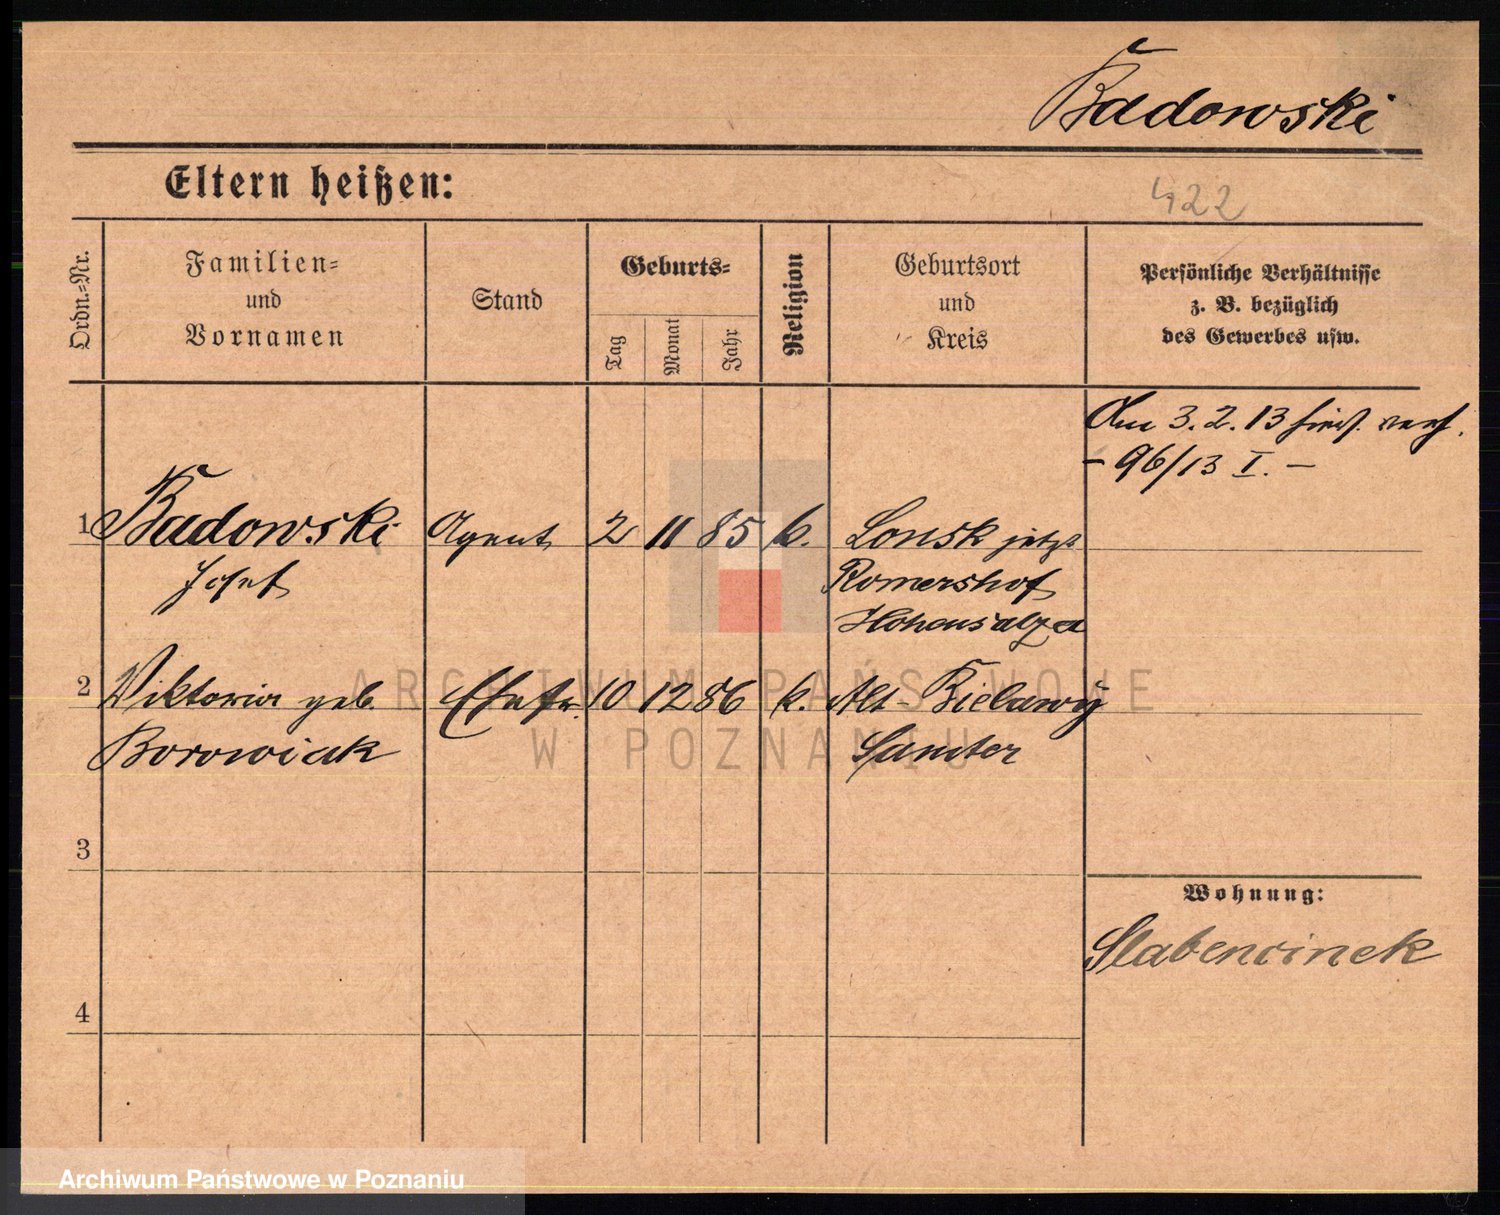 Badowski
Eltern heißen:
422
Ordn.-Nr.
Familien-
und
Vornamen
Stand
Geburts-
Tag
Monat
Jahr
Religion
Geburtsort
und
Kreis
Persönliche Verhältnisse
z. B. bezüglich
des Gewerbes usw.
Am 3. 2. 13
- 96/13 I. -
1 Badowski Agent 2 11 85 k. Lonsk jetzt
Josef Romershof
Hohensalza
2 Viktoria geb. Ehefr. 10 12 86 k. Alt-Bielawy
Borowiak Samter
3
Wohnung:
Slabencinek
4
ARCHIWUM PAŃSTWOWE
W POZNANIU
Archiwum Państwowe w Poznaniu